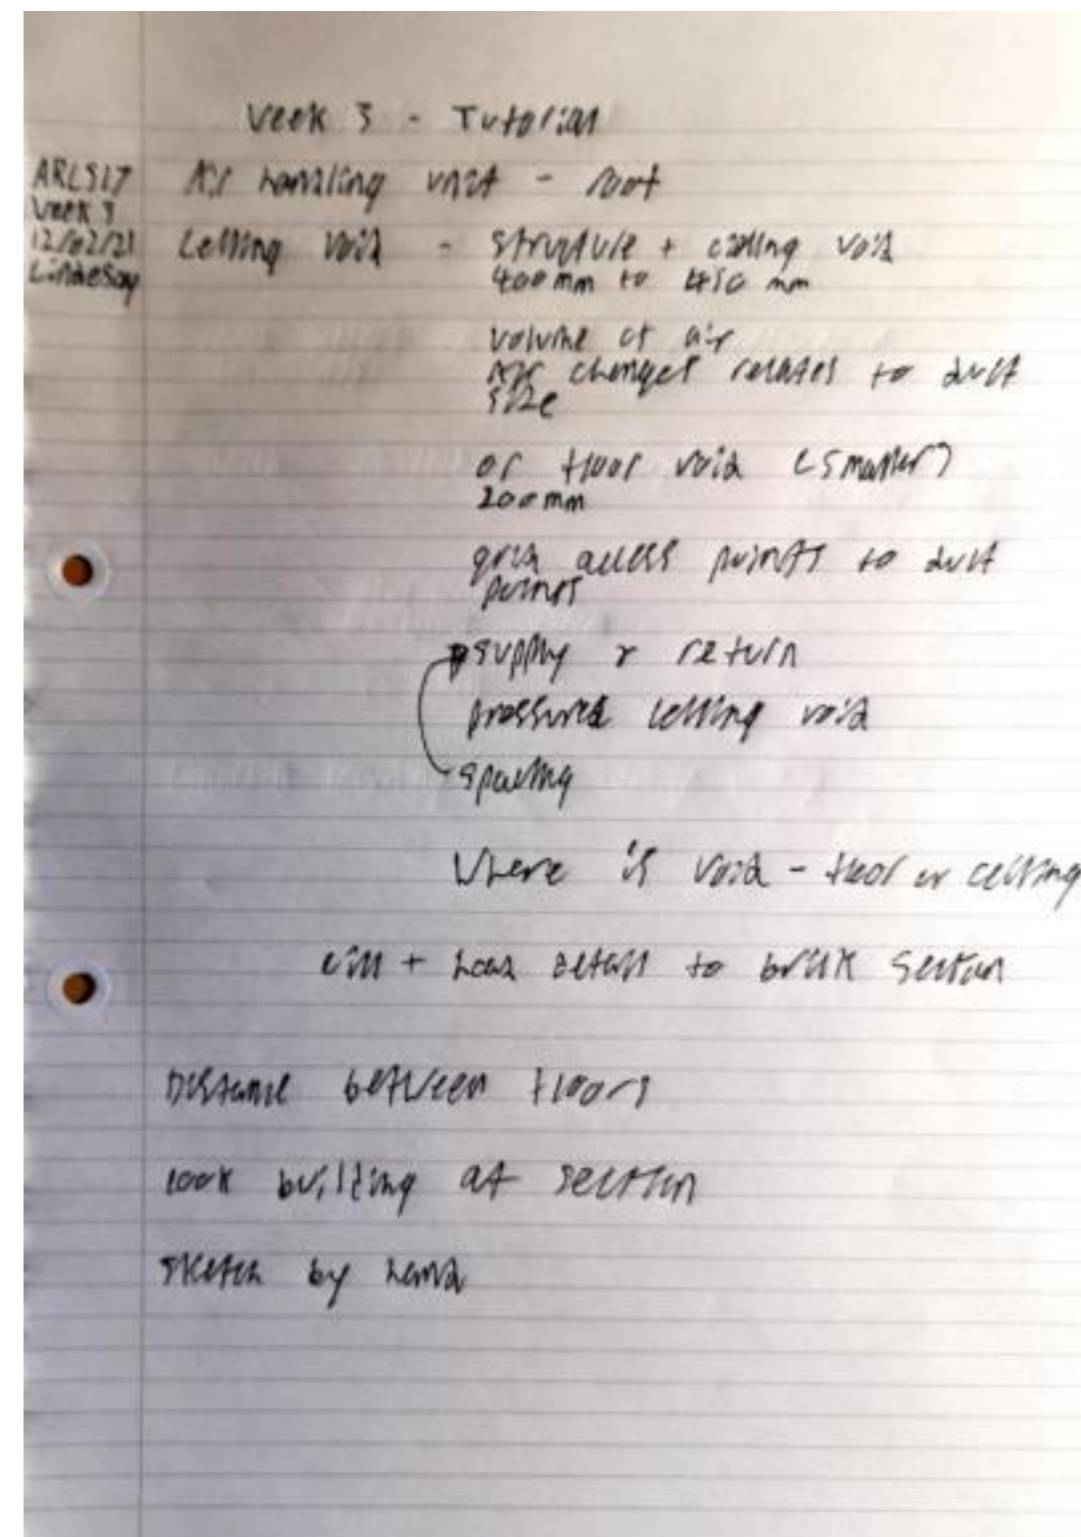 Week 3 - Tutorial
ARC517
Week 3
12/02/21
Lindesay
Air handling unit - roof
Ceiling void - structure + ceiling void
400mm to 450 mm
volume of air
Air changes relates to duct
size
or floor void (smaller)
200mm
grid access points to duct
points
supply & return
pressured ceiling void
spacing
Where is void - floor or ceiling
cill + head detail to brick section
Distance between floors
look building at section
sketch by hand